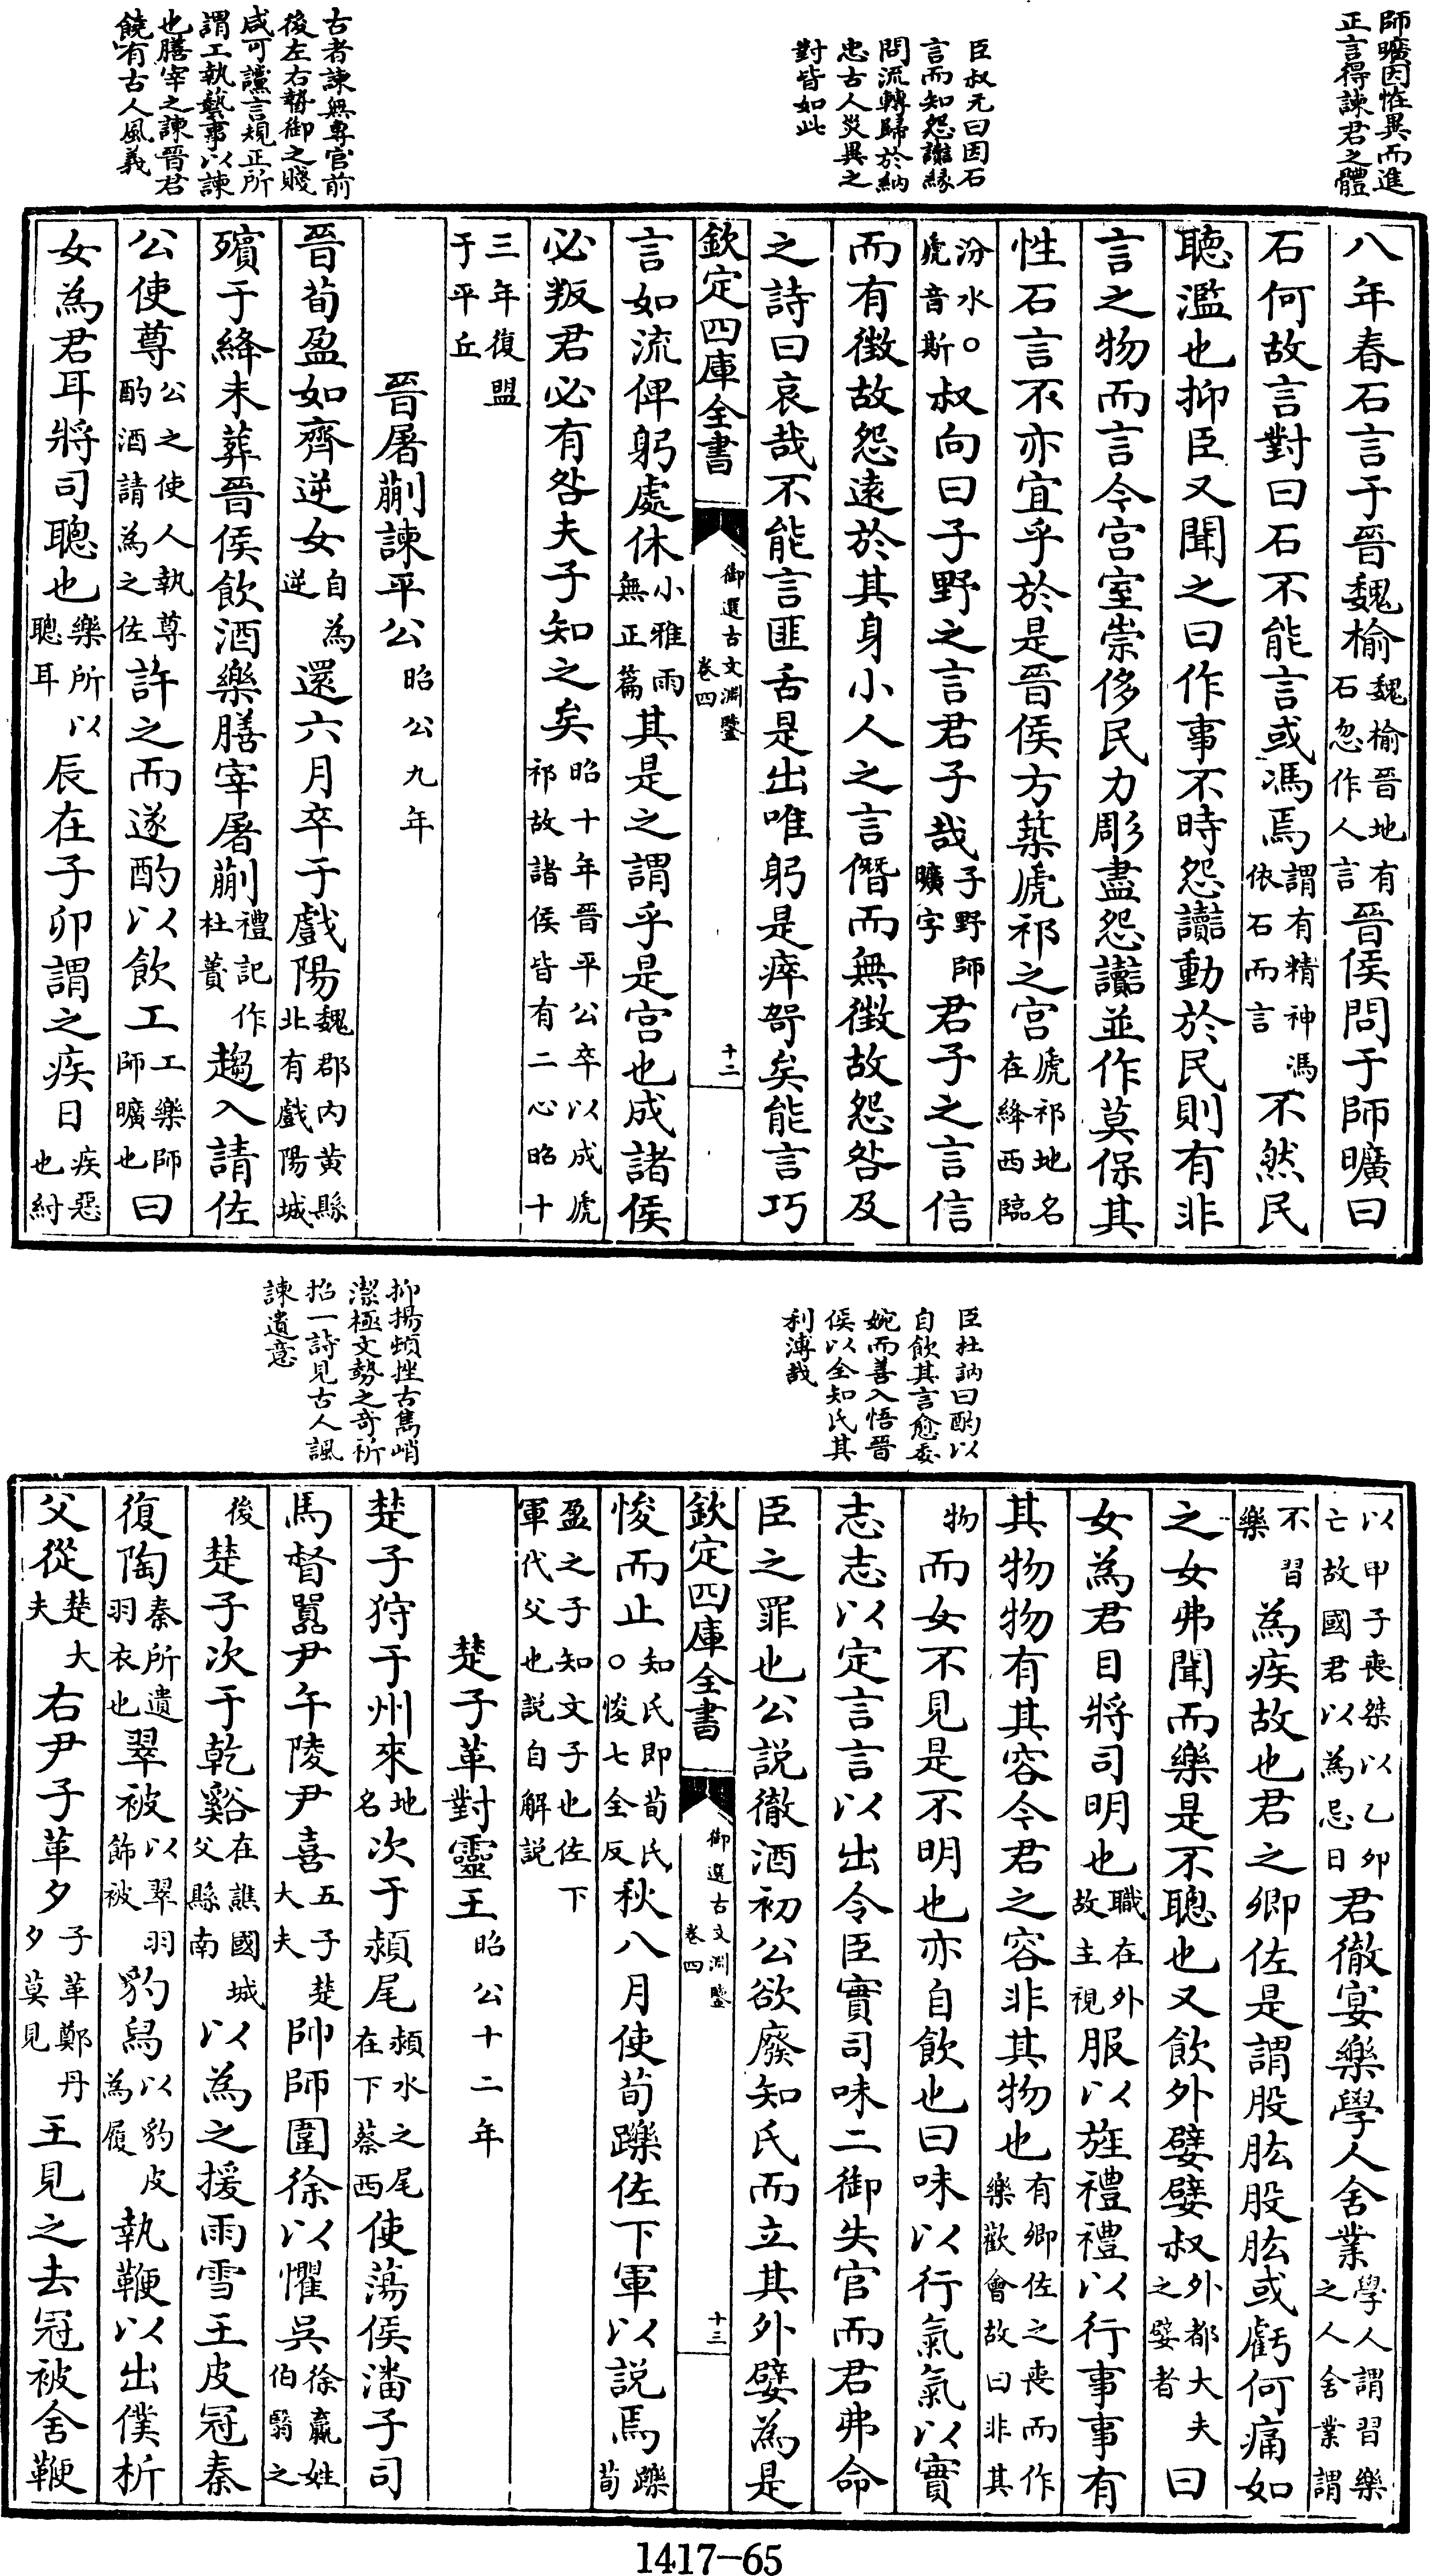 師曠因怪異而進
正言得諫君之體
臣叔元曰因石
言而知怨讟緣
問流轉歸於納
忠古人災異之
對皆如此
古者諫無專官前
後左右暬御之賤
咸可讜言規正所
謂工執藝事以諫
也膳宰之諫晉君
饒有古人風義
八年春石言于晉魏榆魏榆晉地有石忽作人言晉侯問于師曠曰
石何故言對曰石不能言或馮焉謂有精神馮依石而言不然民
聽濫也抑臣又聞之曰作事不時怨讟動於民則有非
言之物而言今宫室崇侈民力彫盡怨讟並作莫保其
性石言不亦宜乎於是晉侯方築虒祁之宫虒祁地名在絳西臨
汾水○虒音斯叔向曰子野之言君子哉子野師曠字君子之言信
而有徴故怨遠於其身小人之言僭而無徴故怨咎及
之詩曰哀哉不能言匪舌是出唯躬是瘁哿矣能言巧
欽定四庫全書
御選古文淵鑒
卷四
十二
言如流俾躬處休小雅雨無正篇其是之謂乎是宫也成諸侯
必叛君必有咎夫子知之矣昭十年晉平公卒以成虒祁故諸侯皆有二心昭十
三年復盟于平丘
晉屠蒯諫平公昭公九年
晉荀盈如齊逆女自為逆還六月卒于戲陽魏郡内黄縣北有戲陽城
殯于絳未葬晉侯飲酒樂膳宰屠蒯禮記作杜蕢趨入請佐
公使尊公之使人執尊酌酒請為之佐許之而遂酌以飲工工樂師師曠也曰
女為君耳將司聰也樂所以聰耳辰在子卯謂之疾日疾惡也紂
臣杜訥曰酌以
自飲其言愈委
婉而善入悟晉
侯以全知氏其
利溥哉
抑揚頓挫古雋峭
潔極文勢之奇祈
招一詩見古人諷
諫遺意
以甲子喪桀以乙卯亡故國君以為忌日君徹宴樂學人舍業學人謂習樂之人舍業謂
不習樂為疾故也君之卿佐是謂股肱股肱或虧何痛如
之女弗聞而樂是不聰也又飲外嬖嬖叔外都大夫之嬖者曰
女為君目將司明也職在外故主視服以旌禮禮以行事事有
其物物有其容今君之容非其物也有卿佐之喪而作樂歡會故曰非其
物而女不見是不明也亦自飲也曰味以行氣氣以實
志志以定言言以出令臣實司味二御失官而君弗命
臣之罪也公説徹酒初公欲廢知氏而立其外嬖為是
欽定四庫全書
御選古文淵鑒
卷四
十三
悛而止知氏即荀氏○悛七全反秋八月使荀躒佐下軍以説焉躒荀
盈之子知文子也佐下軍代父也説自解説
楚子革對靈王昭公十二年
楚子狩于州來地名次于潁尾潁水之尾在下蔡西使蕩侯潘子司
馬督嚻尹午陵尹喜五子楚大夫帥師圍徐以懼吳徐嬴姓伯翳之
後楚子次于乾谿在譙國城父縣南以為之援雨雪王皮冠秦
復陶秦所遺羽衣也翠被以翠羽飾被豹舄以豹皮為履執鞭以出僕析
父從楚大夫右尹子革夕子革鄭丹夕莫見王見之去冠被舍鞭
1417-65